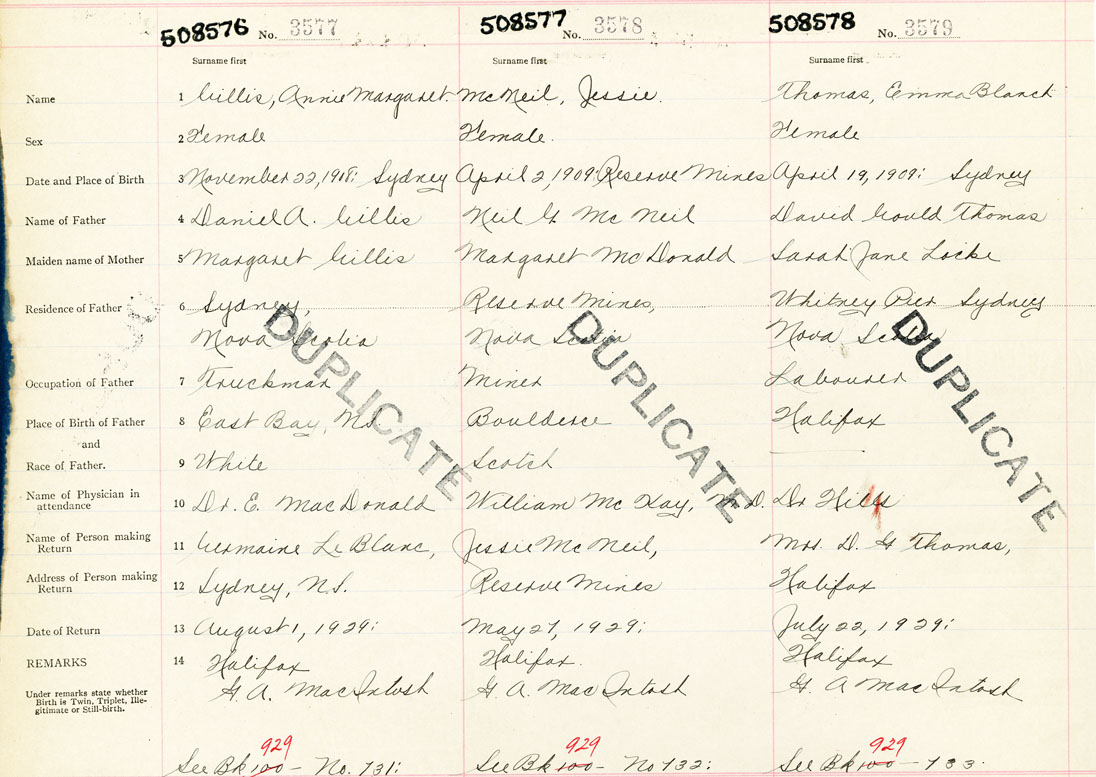 508576 No. 3577 508577 No. 3578 508578 No. 3579
Surname first Surname first Surname first
Name 1 Gillis, Annie Margaret. McNeil, Jessie. Thomas, Emma Blanch
Sex 2 Female Female. Female
Date and Place of Birth 3 November 22, Sydney April 2, 1909: Reserve Mines April 19, 1909: Sydney
Name of Father 4 Daniel A. Gillis Neil G McNeil David Gould Thomas
Maiden name of Mother 5 Margaret Gillis Margaret McDonald Sarah Jane Locke
Residence of Father 6 Sydney, Reserve Mines, Whitney Pier Sydney
Nova Scotia Nova Scotia Nova Scotia
DUPLICATE DUPLICATE DUPLICATE
Occupation of Father 7 Truckman Miner Labourer
Place of Birth of Father 8 East Bay, NS Halifax
and
Race of Father. 9 White Scotch
Name of Physician in
attendance 10 Dr. E. MacDonald William McKay, M.D. Dr
Name of Person making
Return 11 Germaine LeBlanc, Jessie McNeil, Mrs. D. G Thomas,
Address of Person making
Return 12 Sydney, N.S. Reserve Mines Halifax
Date of Return 13 August 1, 1929: May 27, 1929: July 22, 1929:
REMARKS 14 Halifax Halifax. Halifax
G. A. MacIntosh G. A. MacIntosh G. A MacIntosh
Under remarks state whether
Birth is Twin, Triplet, Ille-
gitimate or Still-birth.
929 929 929
See Bk 100 - No. 731: See Bk 100 - No 732: See Bk 100 - 733.